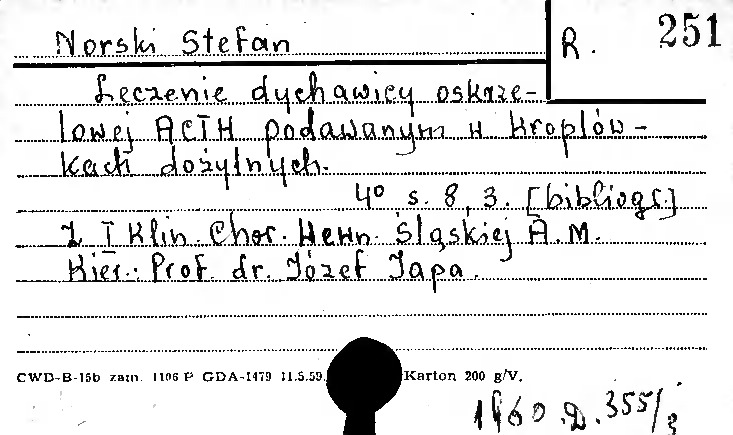 Norski Stefan
R. 251
Leczenie dychawicy oskrze-
lowej ACTH podawanym w kroplów-
kach dożylnych.
4° s. 8, 3. [bibliogr.]
Z I Klin. Chor. Wewn. Śląskiej A.M.
Kier.: Prof. dr. Józef Japa.
CWD-B-15b zam. 1106 P GDA-1479 11.5.59. Karton 200 g/V.
1960.D.355/3